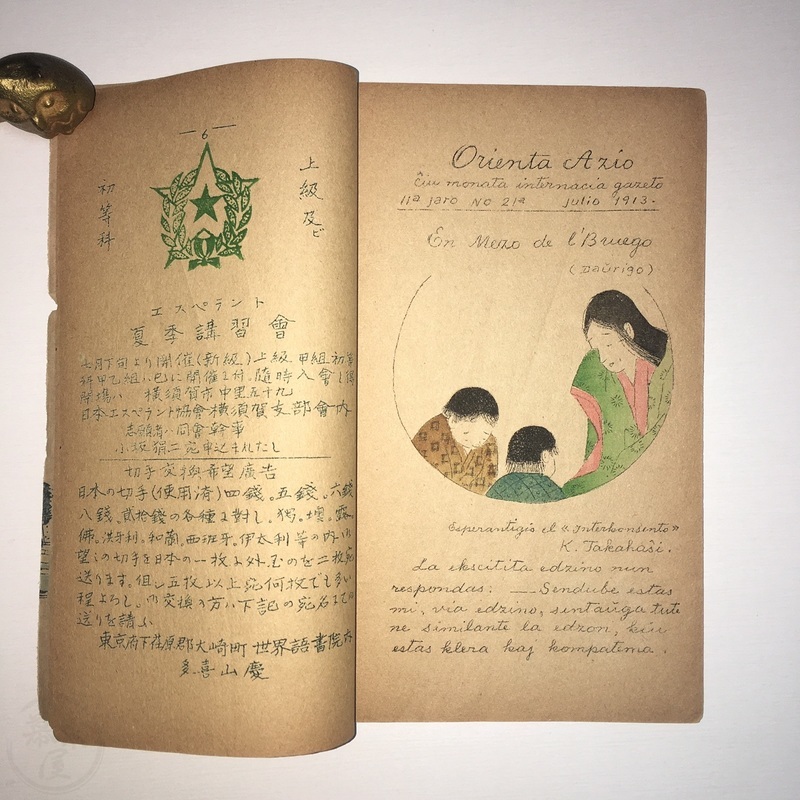 — 6 —
上級及ビ
初等科
エスペラント
夏季講習會
七月下旬より開催(新級)上級 甲組 初等
科甲乙組ハ已に開催し
開場ハ 横須賀市中里五十九
日本エスペラント協會横須賀支部會内
志願者ハ同會幹事
小坂狷二宛申込まれたし
切手交換希望廣告
日本の切手(使用済)四錢。五錢。六錢
八錢、貳拾錢の各種に對し。獨。墺。露
佛。洪牙利。和蘭。西班牙。伊太利等の内
望ミの切手を日本の一枚に外玉のを二枚宛
送ります。但し五枚以上宛何枚でも多い
程よろし。御交換の方ハ下記の宛名まで
送りを請ふ
東京府下荏原郡大崎町 世界語書院内
多喜山慶
Orienta Azio
ĉiu monata internacia gazeto
11a jaro No 21a julio 1913.
En Mezo de l'Bruego
(Daŭrigo)
Esperantigis el « Interkonsento »
K. Takahaŝi.
La ekscitita edzino nun
respondas: — Sendube estas
mi, via edzino, sintaŭga tute
ne similante la edzon, kiu
estas klera kaj kompatema.